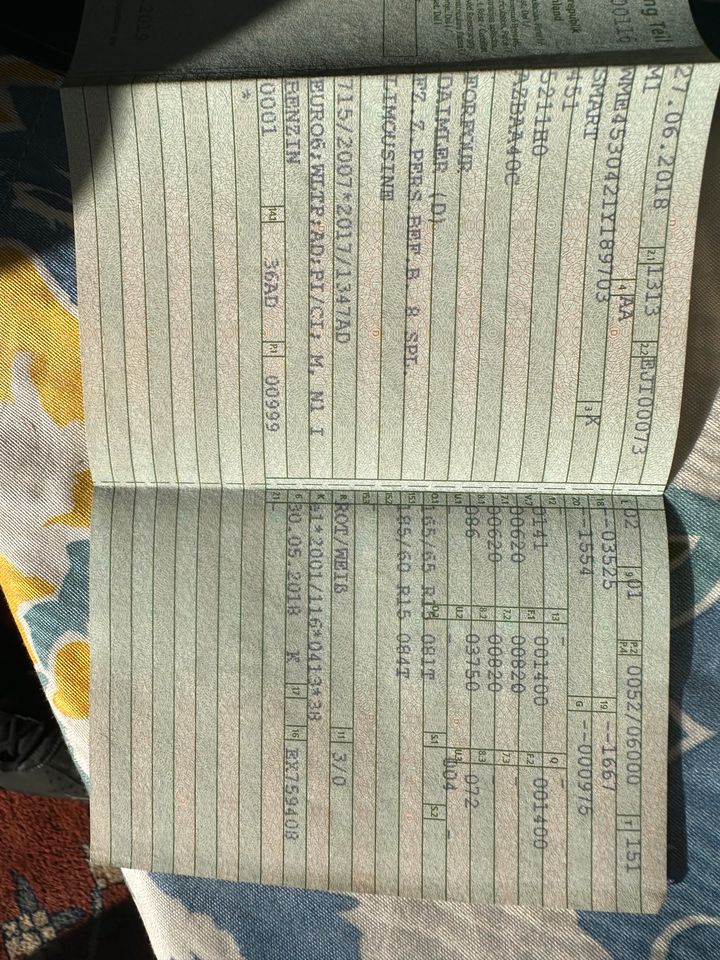 27.06.2018 2.1 1313 2.2 EJI00073
M1 4 AA
WME4530421Y189703 3 K
SMART
451
5211H0
FORFOUR
DAIMLER (D)
FZ.Z.PERS.BEF.B. 8 SPL.
LIMOUSINE
715/2007*2017/1347AD
EURO6;WLTP;AD;PI/CI; M, N1 I
BENZIN
0001 14.1 36AD P.1 00999
*
02 9 01 P.2 P.4 0052/06000 T 151
18 --03525 19 --1667
20 --1554 G --000975
12 - 13 - Q -
V.7 0141 F.1 001400 F.2 001400
7.1 00620 7.2 00820 7.3 -
8.1 00620 8.2 00820 8.3 -
U.1 086 U.2 03750 U.3 072
O.1 - O.2 - S.1 004 S.2 -
15.1 165/65 R15 081T
15.2 185/60 R15 084T
15.3 -
R ROT/WEIß 11 3/0
K e1*2001/116*0413*38
6 30.05.2018 K 17 16 EX759408
21 -